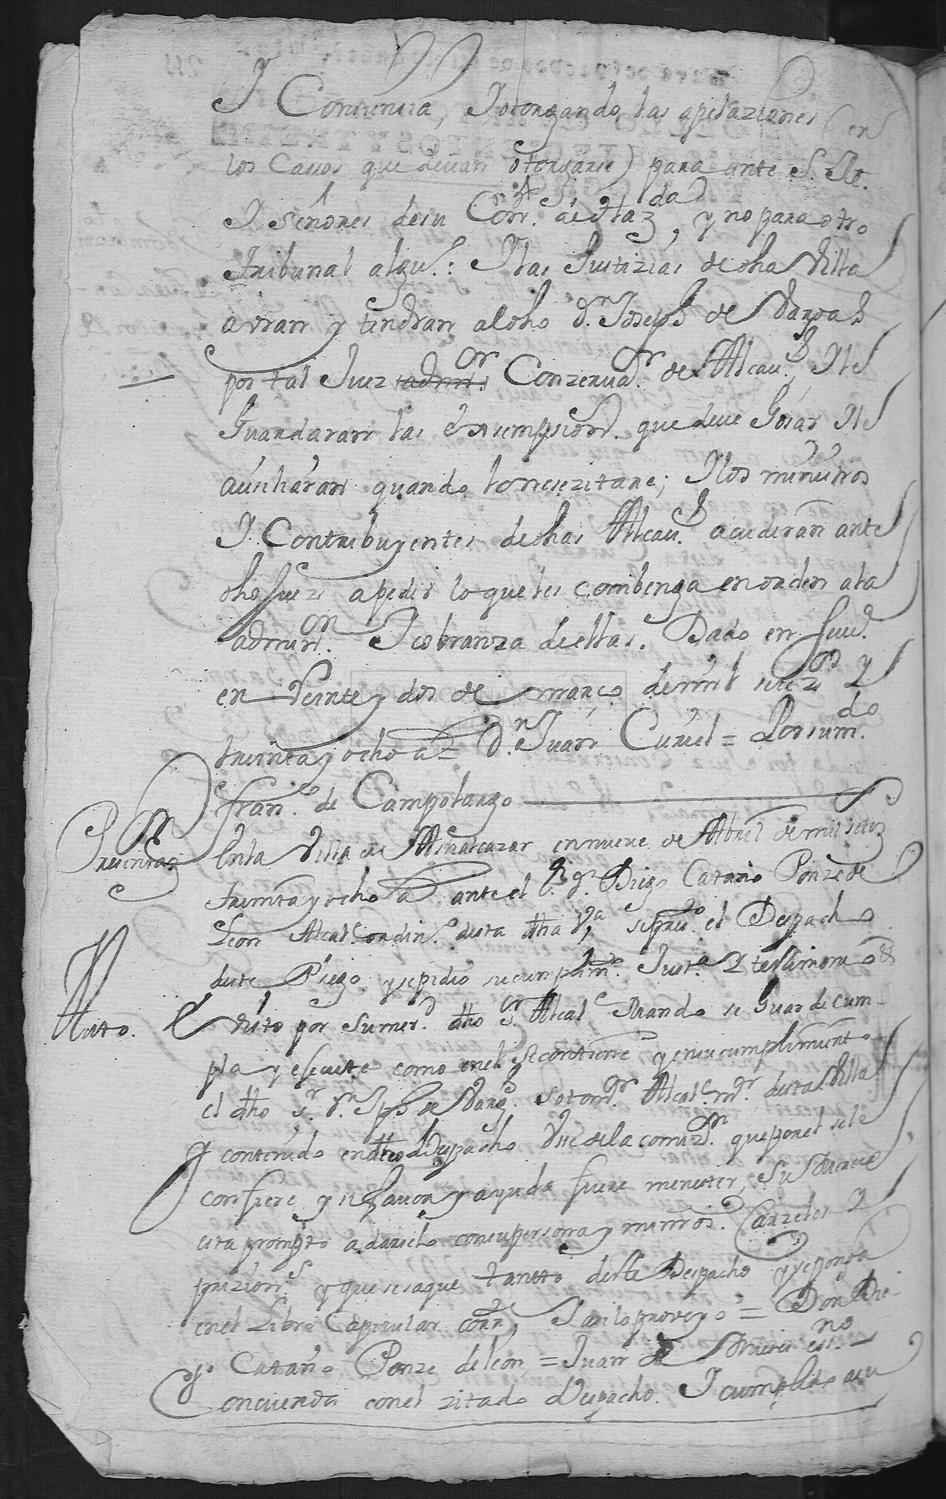 Y Conviencia, Y otorgando las apelaziones (en
los Casos que devan otorgarse) para ante S. M.
Y señores de su Con.º de Haz.da, y no para otro
tribunal algu.º: Y las Justizias de dha Villa
avran y tendran al dho D.n Joseph de
por tal Juez Conzervad.or de Alcav.s Y le
Guardaran las exsempsion.s que deve Gosar Y le
ausiliaran quando lo nesezitare; Y los ministros
Y Contribuyentes de dhas Alcav.s acudiran ante
dho Juez a pedir lo que les combenga en orden a la
admin.on Y cobranza de ellas. Dado en Sevi.ª
en Veinte y dos de março de mil setez.os y
treinta y ocho a.s = D.n Juan Curiel = Por su m.do
Fran.co de Campolargo
En la Villa de Aznalcazar en nueve de Abril de mil setez.s
treinta y ocho a.s ante el s.r D.n Diego Cataño Ponze de
Leon Alcal.e ordin.º desta dha V.ª, se pres.to el Despacho
deste Pliego, y se pidio su cumplim.to Just.ª y testimonio &
Auto. Visto por su mer.d dho s.r Alcal.e Mando se Guarde cum-
pla y execute como en el se contiene y en su cumplimiento
el dho s.r D.n Jph de
contenido en dho Despacho Use de la comiz.on que por el se le
confiere, y si favor y ayuda fuere menester, Su Merced
esta prompto a darselo con su persona y minros. Carzeles y
prizion.s y que se saque tantto deste Despacho y se ponga
en el Libro Capitular corr.te, Y asi lo proveyo = Don Die-
Cataño Ponze de leon = Juan de ess.no
Concuerda con el zitado Despacho. Y cumplido a su